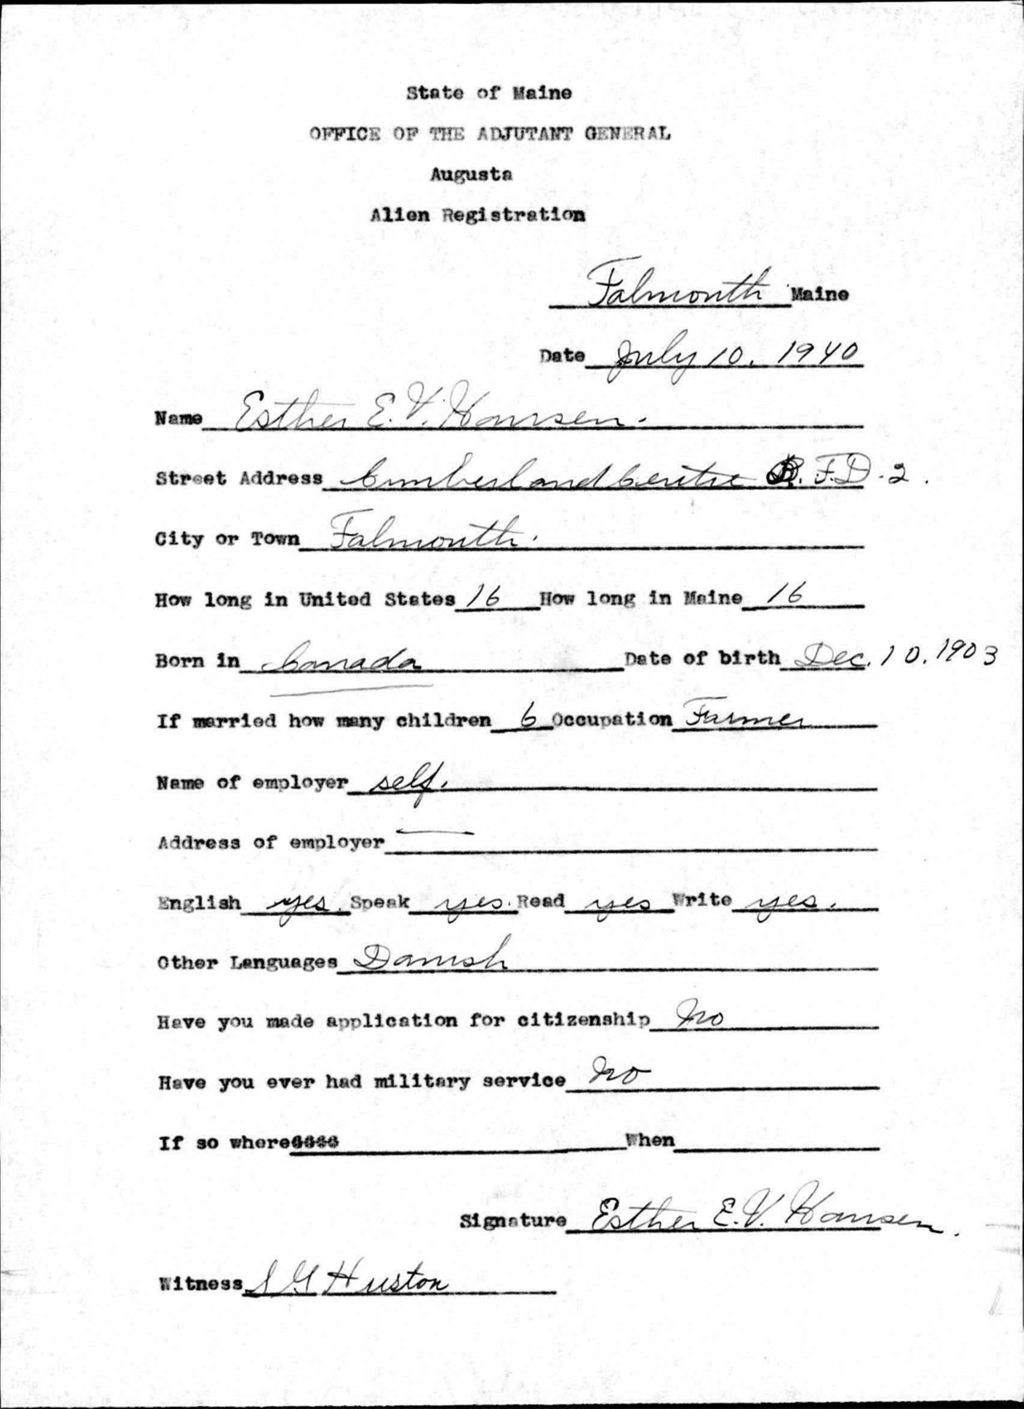 State of Maine
OFFICE OF THE ADJUTANT GENERAL
Augusta
Alien Registration
Falmouth Maine
Date July 10, 1940
Name Esther E. V. Hansen.
Street Address Cumberland Centre R.F.D. 2.
City or Town Falmouth.
How long in United States 16 How long in Maine 16
Born in Canada Date of birth Dec. 10, 1903
If married how many children 6 Occupation Farmer
Name of employer self.
Address of employer —
English yes. Speak yes. Read yes Write yes.
Other Languages Danish
Have you made application for citizenship No
Have you ever had military service No
If so where When
Signature Esther E. V. Hansen.
Witness S G Huston